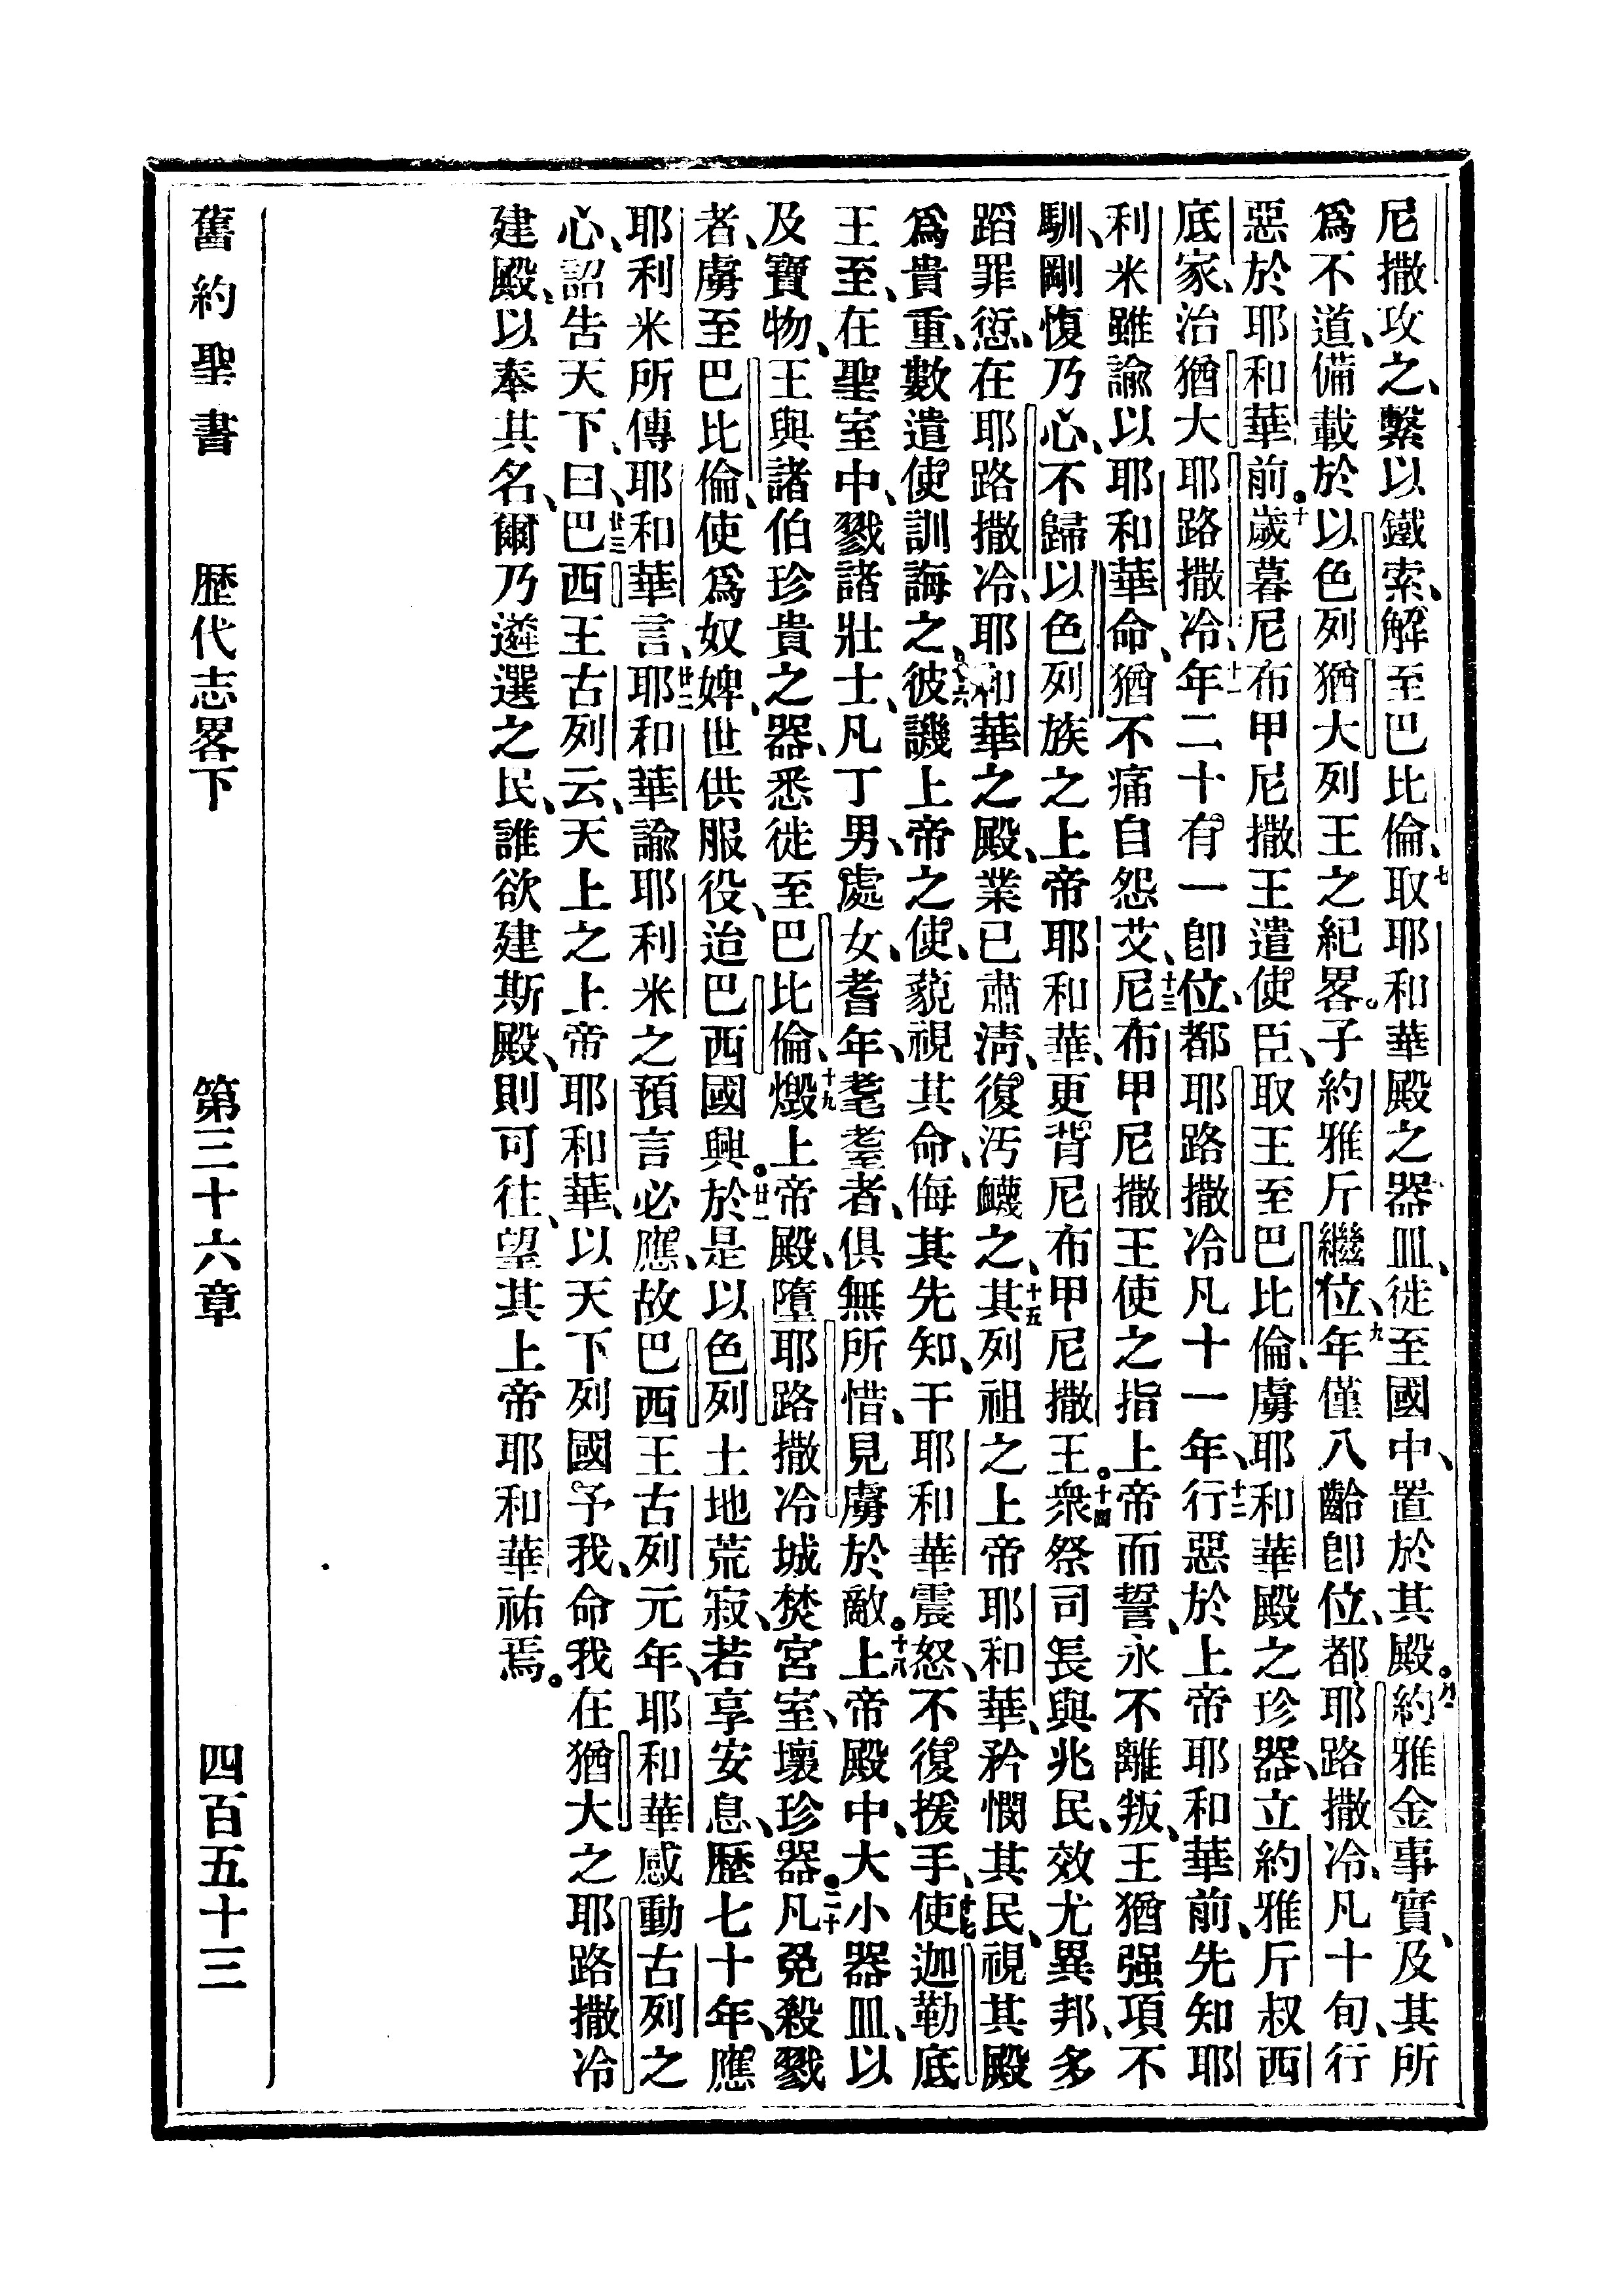 尼撒攻之、繫以鐵索、解至巴比倫、七取耶和華殿之器皿、徙至國中、置於其殿。八約雅金事實、及其所
爲不道、備載於以色列猶大列王之紀畧。子約雅斤繼位、九年僅八齡卽位、都耶路撒冷、凡十旬、行
惡於耶和華前。十歲暮尼布甲尼撒王遣使臣、取王至巴比倫、虜耶和華殿之珍器、立約雅斤叔西
底家、治猶大耶路撒冷、十一年二十有一卽位、都耶路撒冷凡十一年、十二行惡於上帝耶和華前、先知耶
利米雖諭以耶和華命、猶不痛自怨艾、十三尼布甲尼撒王使之指上帝而誓、永不離叛、王猶强項不
馴、剛愎乃心、不歸以色列族之上帝耶和華、更背尼布甲尼撒王。十四衆祭司長與兆民、效尤異邦、多
蹈罪愆、在耶路撒冷、耶和華之殿、業已肅淸、復汚衊之、十五其列祖之上帝耶和華、矜憫其民、視其殿
爲貴重、數遣使訓誨之、十六彼譏上帝之使、藐視其命、侮其先知、干耶和華震怒、不復援手、十七使迦勒底
王至、在聖室中、戮諸壯士、凡丁男、處女、耆年、耄耋者、俱無所惜、見虜於敵。十八上帝殿中、大小器皿、以
及寶物、王與諸伯珍貴之器、悉徙至巴比倫、十九燬上帝殿、墮耶路撒冷城、焚宮室、壞珍器。二十凡免殺戮
者、虜至巴比倫、使爲奴婢、世供服役、迨巴西國興。廿一於是以色列土地荒寂、若享安息、歷七十年、應
耶利米所傳耶和華言、廿二耶和華諭耶利米之預言必應、故巴西王古列元年、耶和華感動古列之
心、詔告天下、曰、廿三巴西王古列云、天上之上帝耶和華、以天下列國予我、命我在猶大之耶路撒冷
建殿、以奉其名、爾乃遴選之民、誰欲建斯殿、則可往、望其上帝耶和華祐焉。
舊約聖書　歷代志畧下　第三十六章　四百五十三